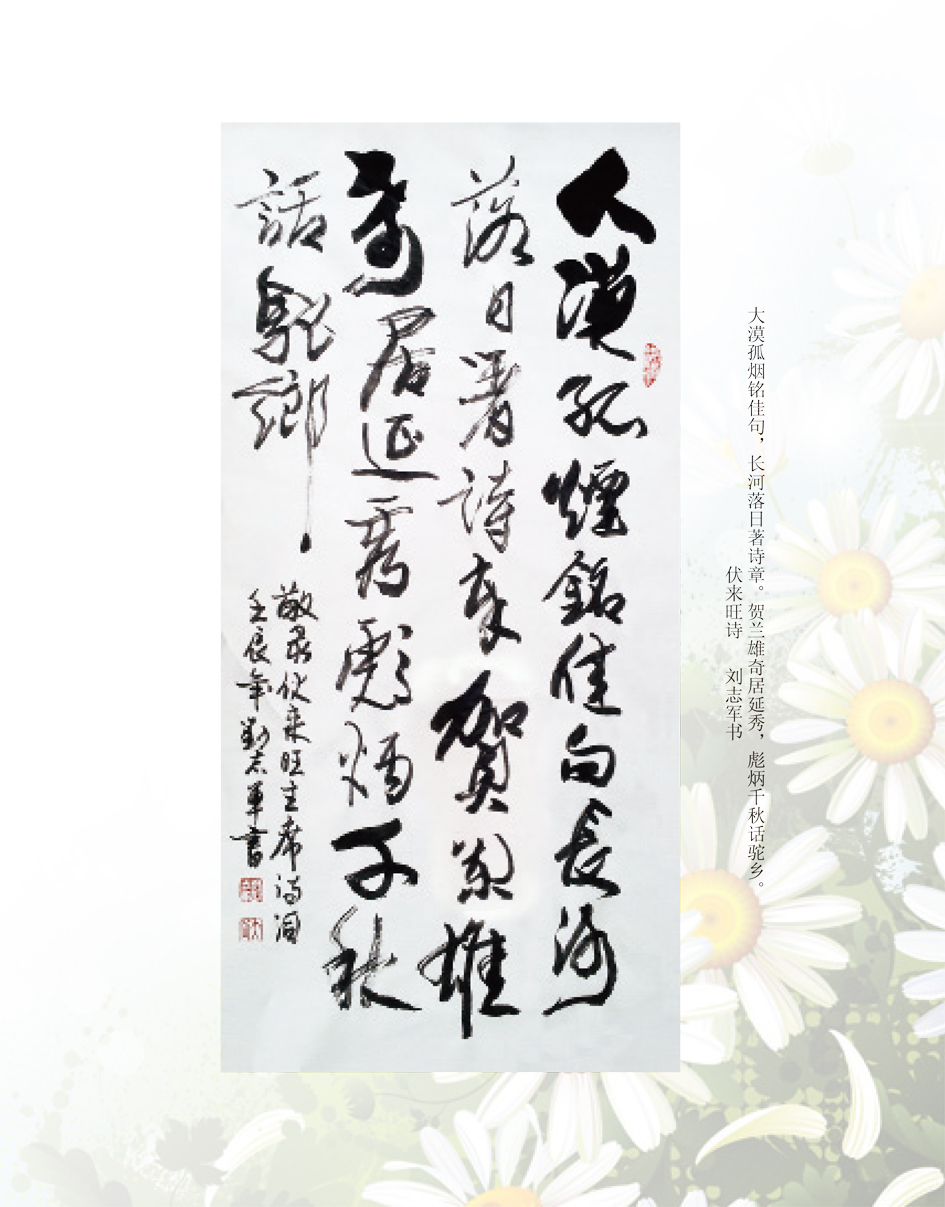 大漠孤烟铭佳句，长河落日著诗章。贺兰雄奇居延秀，彪炳千秋话驼乡。
伏来旺诗 刘志军书
大漠孤煙銘佳句長河
落日著詩章賀蘭雄
奇居延秀彪炳千秋
話駝鄉
敬录伏来旺主席诗词
壬辰年劉志軍書